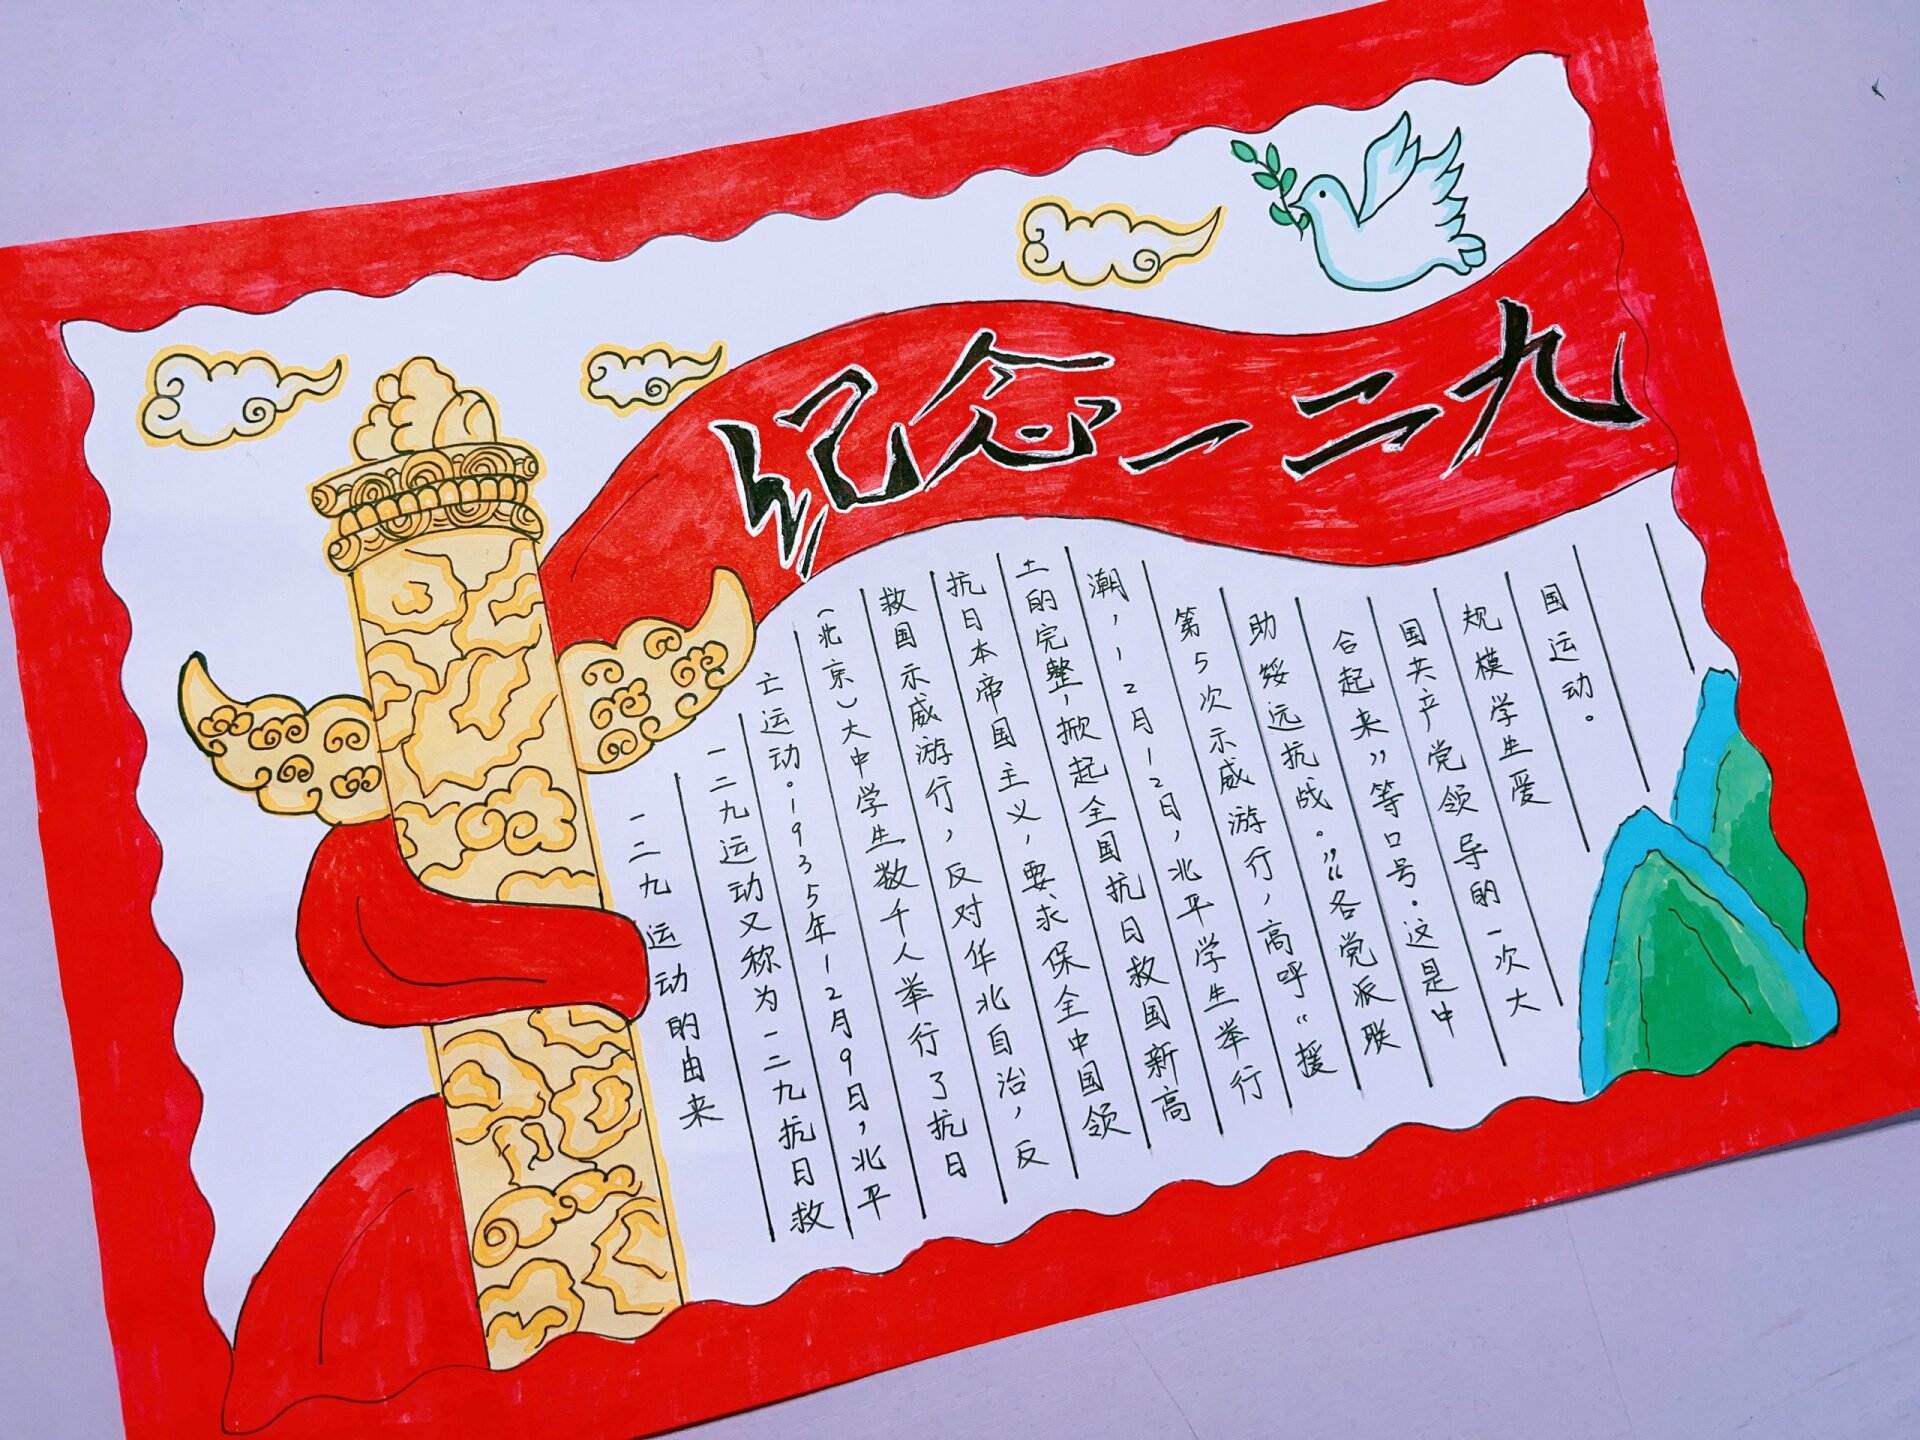 纪念一二九
一二九运动的由来
一二九运动又称为一二九抗日救
亡运动。1935年12月9日,北平
(北京)大中学生数千人举行了抗日
救国示威游行,反对华北自治,反
抗日本帝国主义,要求保全中国领
土的完整,掀起全国抗日救国新高
潮,12月12日,北平学生举行
第5次示威游行,高呼“援
助绥远抗战。”“各党派联
合起来”等口号。这是中
国共产党领导的一次大
规模学生爱
国运动。